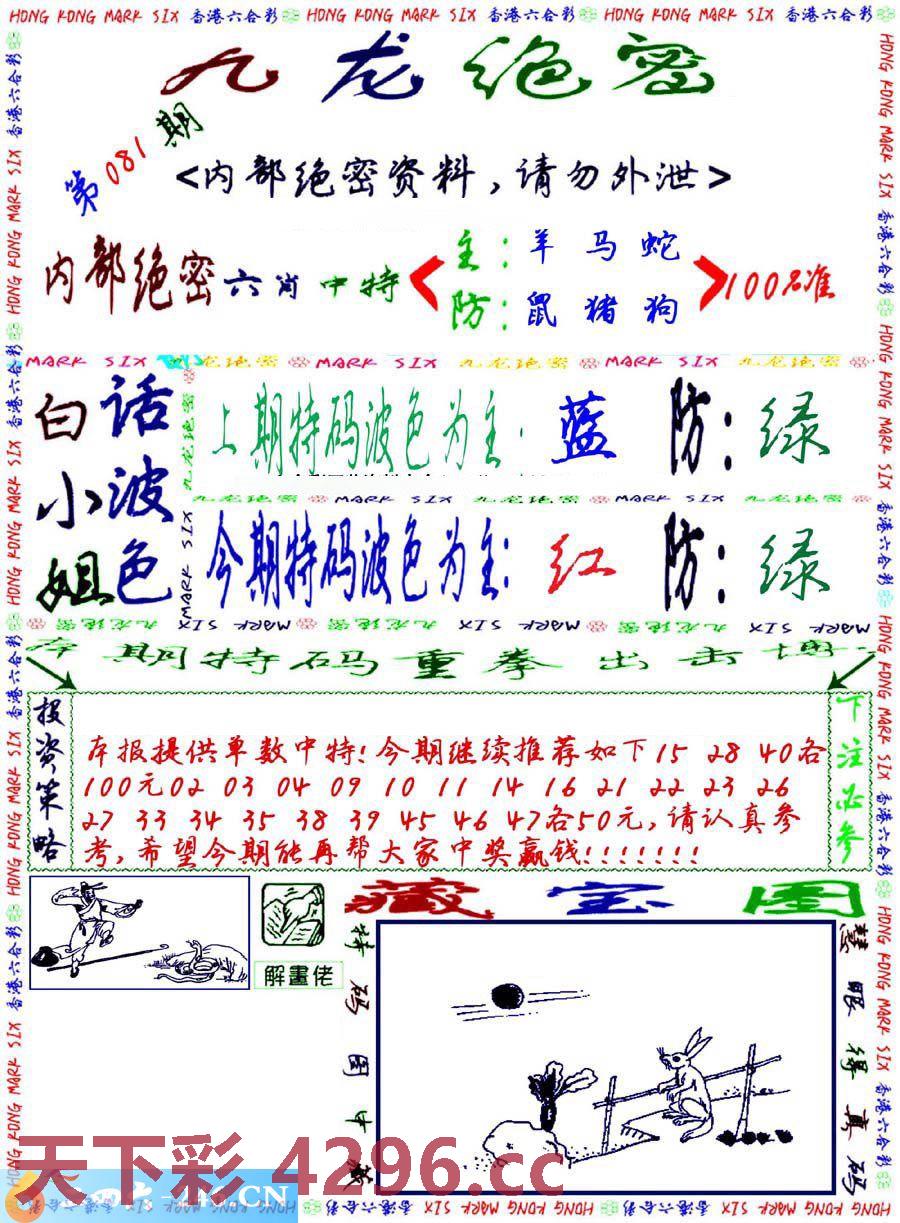 HONG KONG MARK SIX 香港六合彩 HONG KONG MARK SIX 香港六合彩 HONG KONG MARK SIX 香港六合彩
九龙绝密
第081期
<内部绝密资料,请勿外泄>
内部绝密六肖中特
主:羊马蛇
防:鼠猪狗
100%准
MARK SIX 九龙绝密 MARK SIX 九龙绝密 MARK SIX 九龙绝密
白小姐
话波色
上期特码波色为主:蓝 防:绿
九龙绝密 MARK SIX 九龙绝密 MARK SIX 九龙绝密
今期特码波色为主:红 防:绿
MARK SIX 九龙绝密 MARK SIX 九龙绝密 MARK SIX 九龙绝密 MARK SIX
期特码重拳出击
投资策略
本报提供单数中特!今期继续推荐如下15 28 40各
100元02 03 04 09 10 11 14 16 21 22 23 26
27 33 34 35 38 39 45 46 47各50元,请认真参
考,希望今期能再帮大家中奖赢钱!!!!!!!
下注必参
解畫佬
藏宝图
特码图中藏
慧眼得真码
天下彩 4296.cc